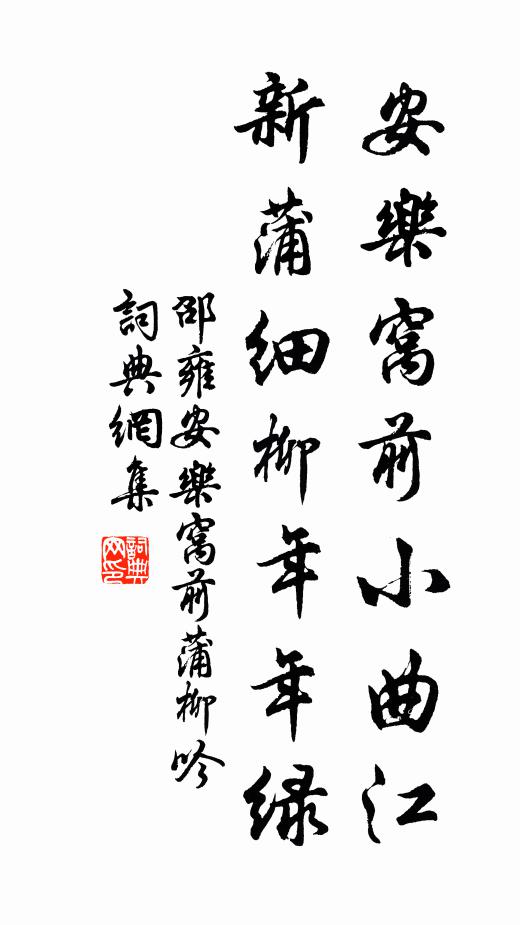 安樂窩前小曲江
新蒲細柳年年緑
邵雍安樂窩前蒲柳吟
詞典網集
詞典網印